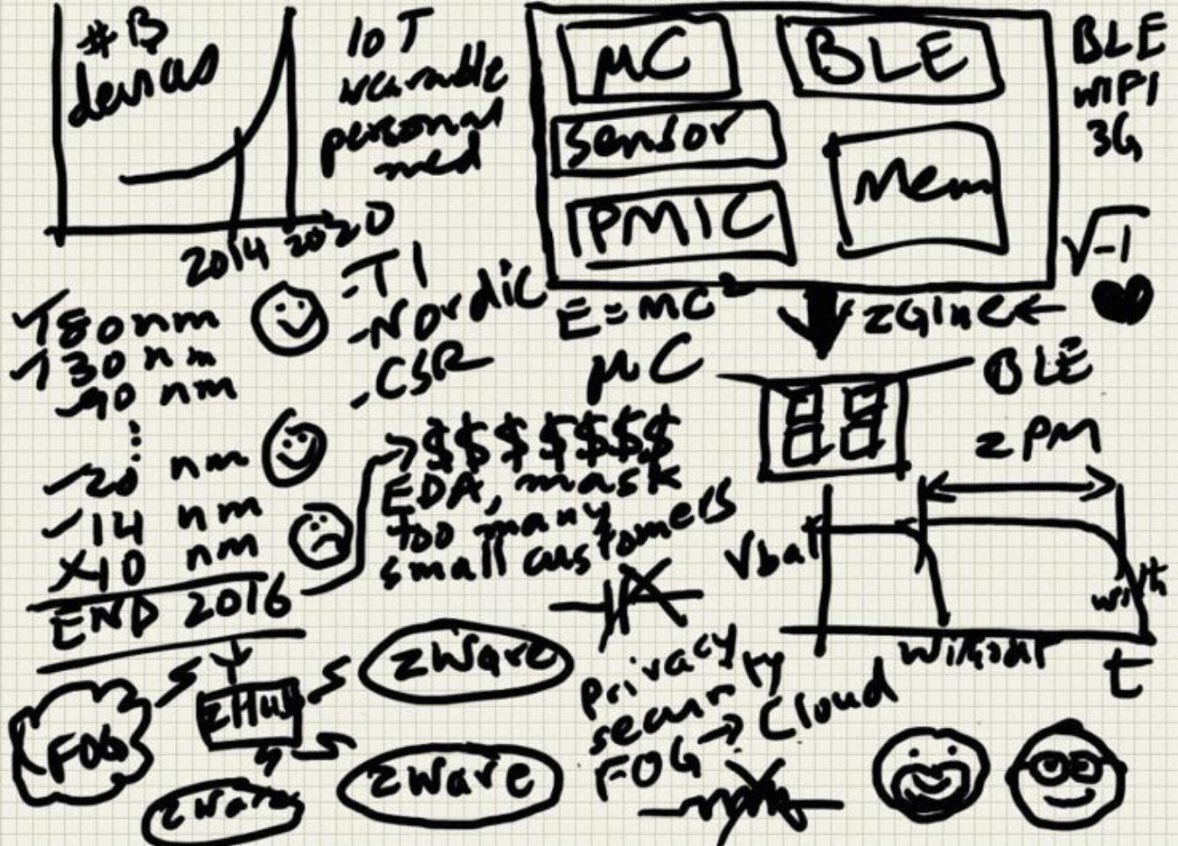 #B
devices
IoT
wearable
personal
med
2014 2020
μC
BLE
sensor
PMIC
Mem
BLE
WIFI
3G
√-1
180 nm
130 nm
90 nm
20 nm
14 nm
10 nm
END 2016
-TI
-Nordic
-CSR
E=MC²
zGlue
μC
BLE
$$$$$$$
EDA, mask
too many
small customers
zPM
Vbat
with
without
t
FOG
zHub
zWare
zWare
zWare
privacy
security
FOG → Cloud